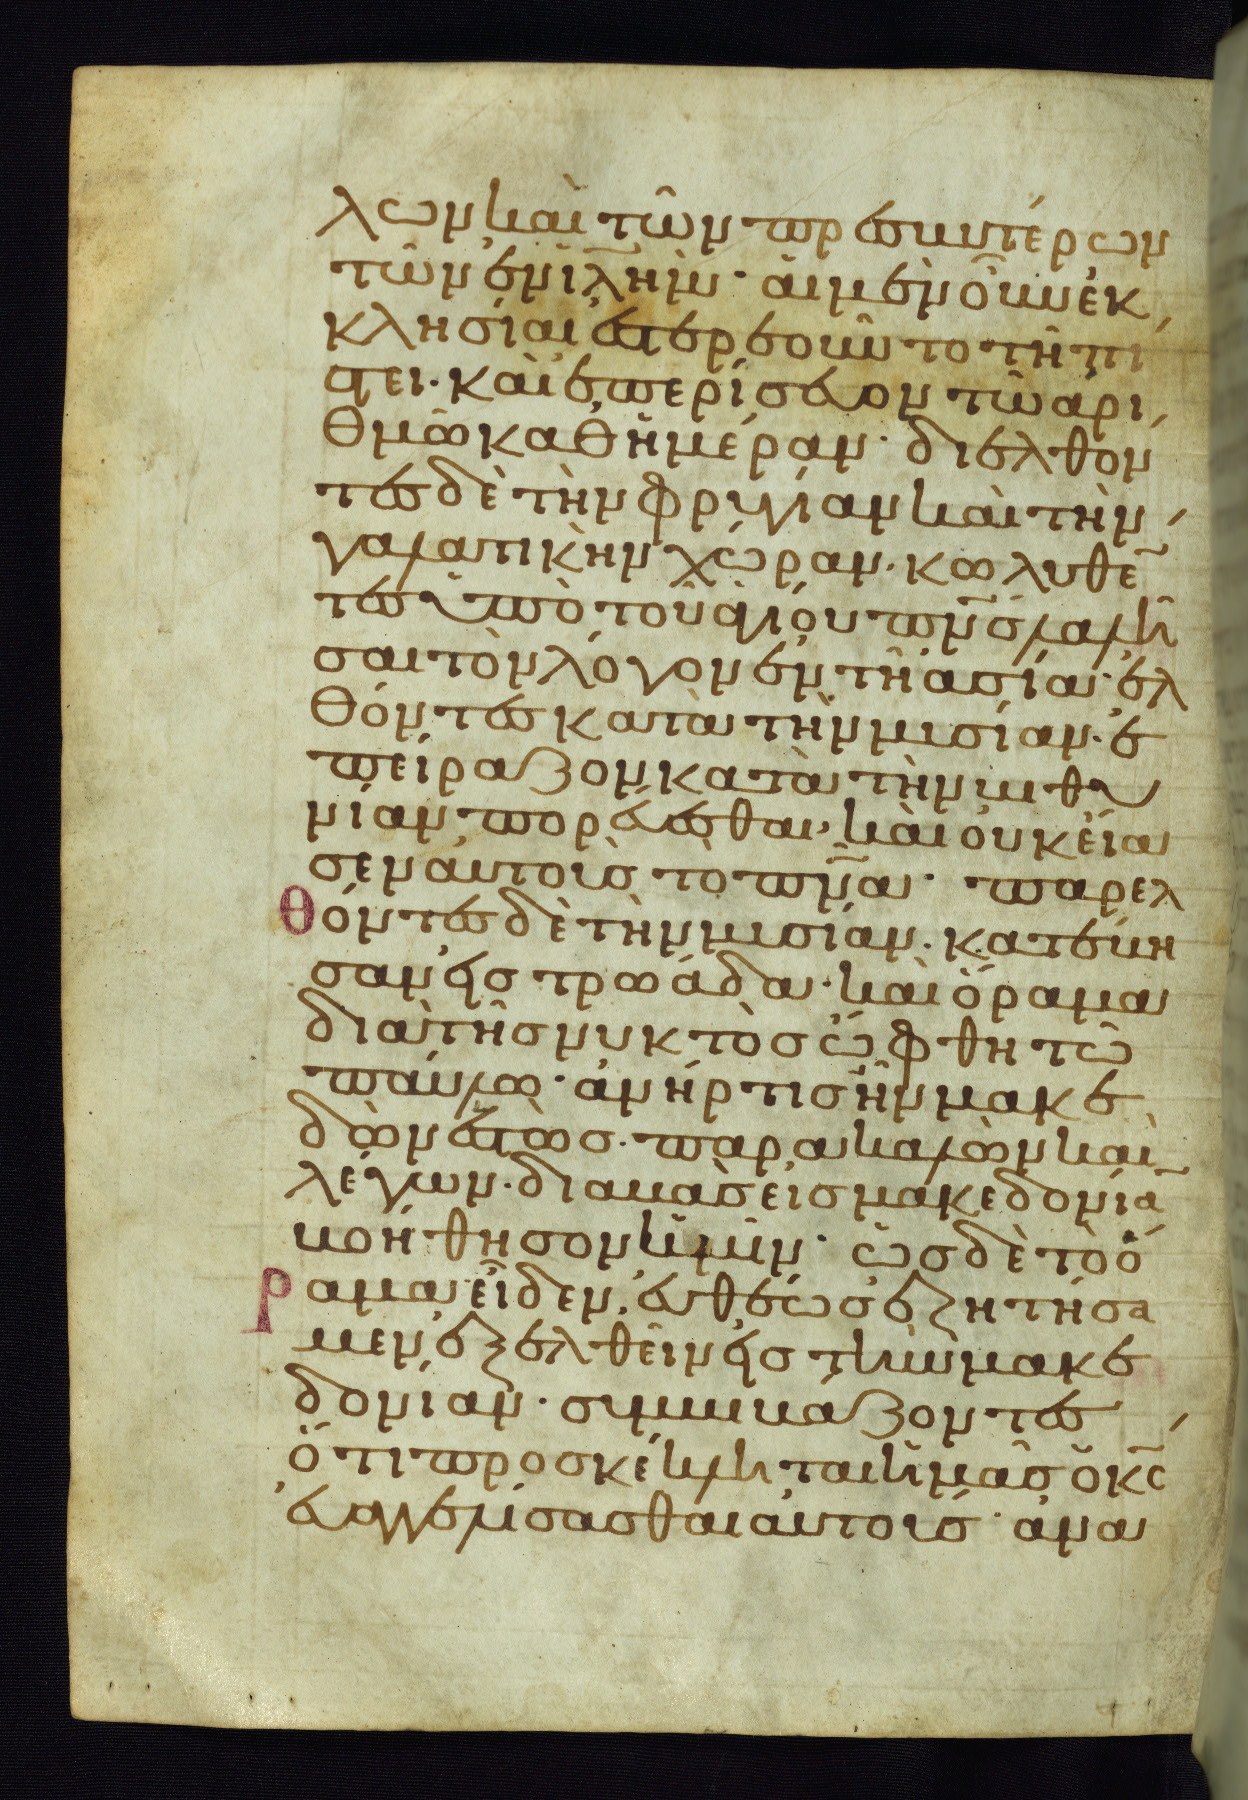 λων καὶ τῶν πρεσβυτέρων
τῶν ἐν ἱλ̅η̅μ· αἱ μὲν οὖν ἐκ
κλησίαι ἐστερεοῦντο τῆ πί
στει· καὶ ἐπερίσευον τῶ ἀρι
θμῶ καθ ἡμέραν· διελθόν
τες δὲ τὴν φρυγίαν καὶ τὴν
γαλατικὴν χώραν· κωλυθέ̅
τες ὑπὸ τοῦ ἁγίου πν̅ς λαλῆ
σαι τὸν λόγον ἐν τῆ ἀσία· ἐλ
θόντες κατὰ τὴν μισίαν· ἐ
πείραζον κατὰ τὴν βιθυ
νίαν πορεύεσθαι· καὶ οὐκ εἴα
σεν αὐτοὺς τὸ πν̅α· παρελ
θόντες δὲ τὴν μισίαν· κατέβη
σαν εἰς τρωάδα· καὶ ὅραμα
διὰ τῆς νυκτὸς ὤφθη τῶ
παύλω· ἀνήρ τις ἦν μακε
δὼν ἑστὼς· παρακαλὼν καὶ
λέγων· διαβὰς εἰς μακεδονία̅
βοήθησον ἡμῖν· ὡς δὲ τὸ ὅ
ραμα εἶδεν, εὐθέως ἐζητήσα
μεν ἐξελθεῖν εἰς τὴν μακε
δονίαν· συμβιβάζοντες
ὅτι προσκέκληται ἡμᾶς ὁ κ̅ς
εὐαγγελίσασθαι αὐτούς· ἀνα